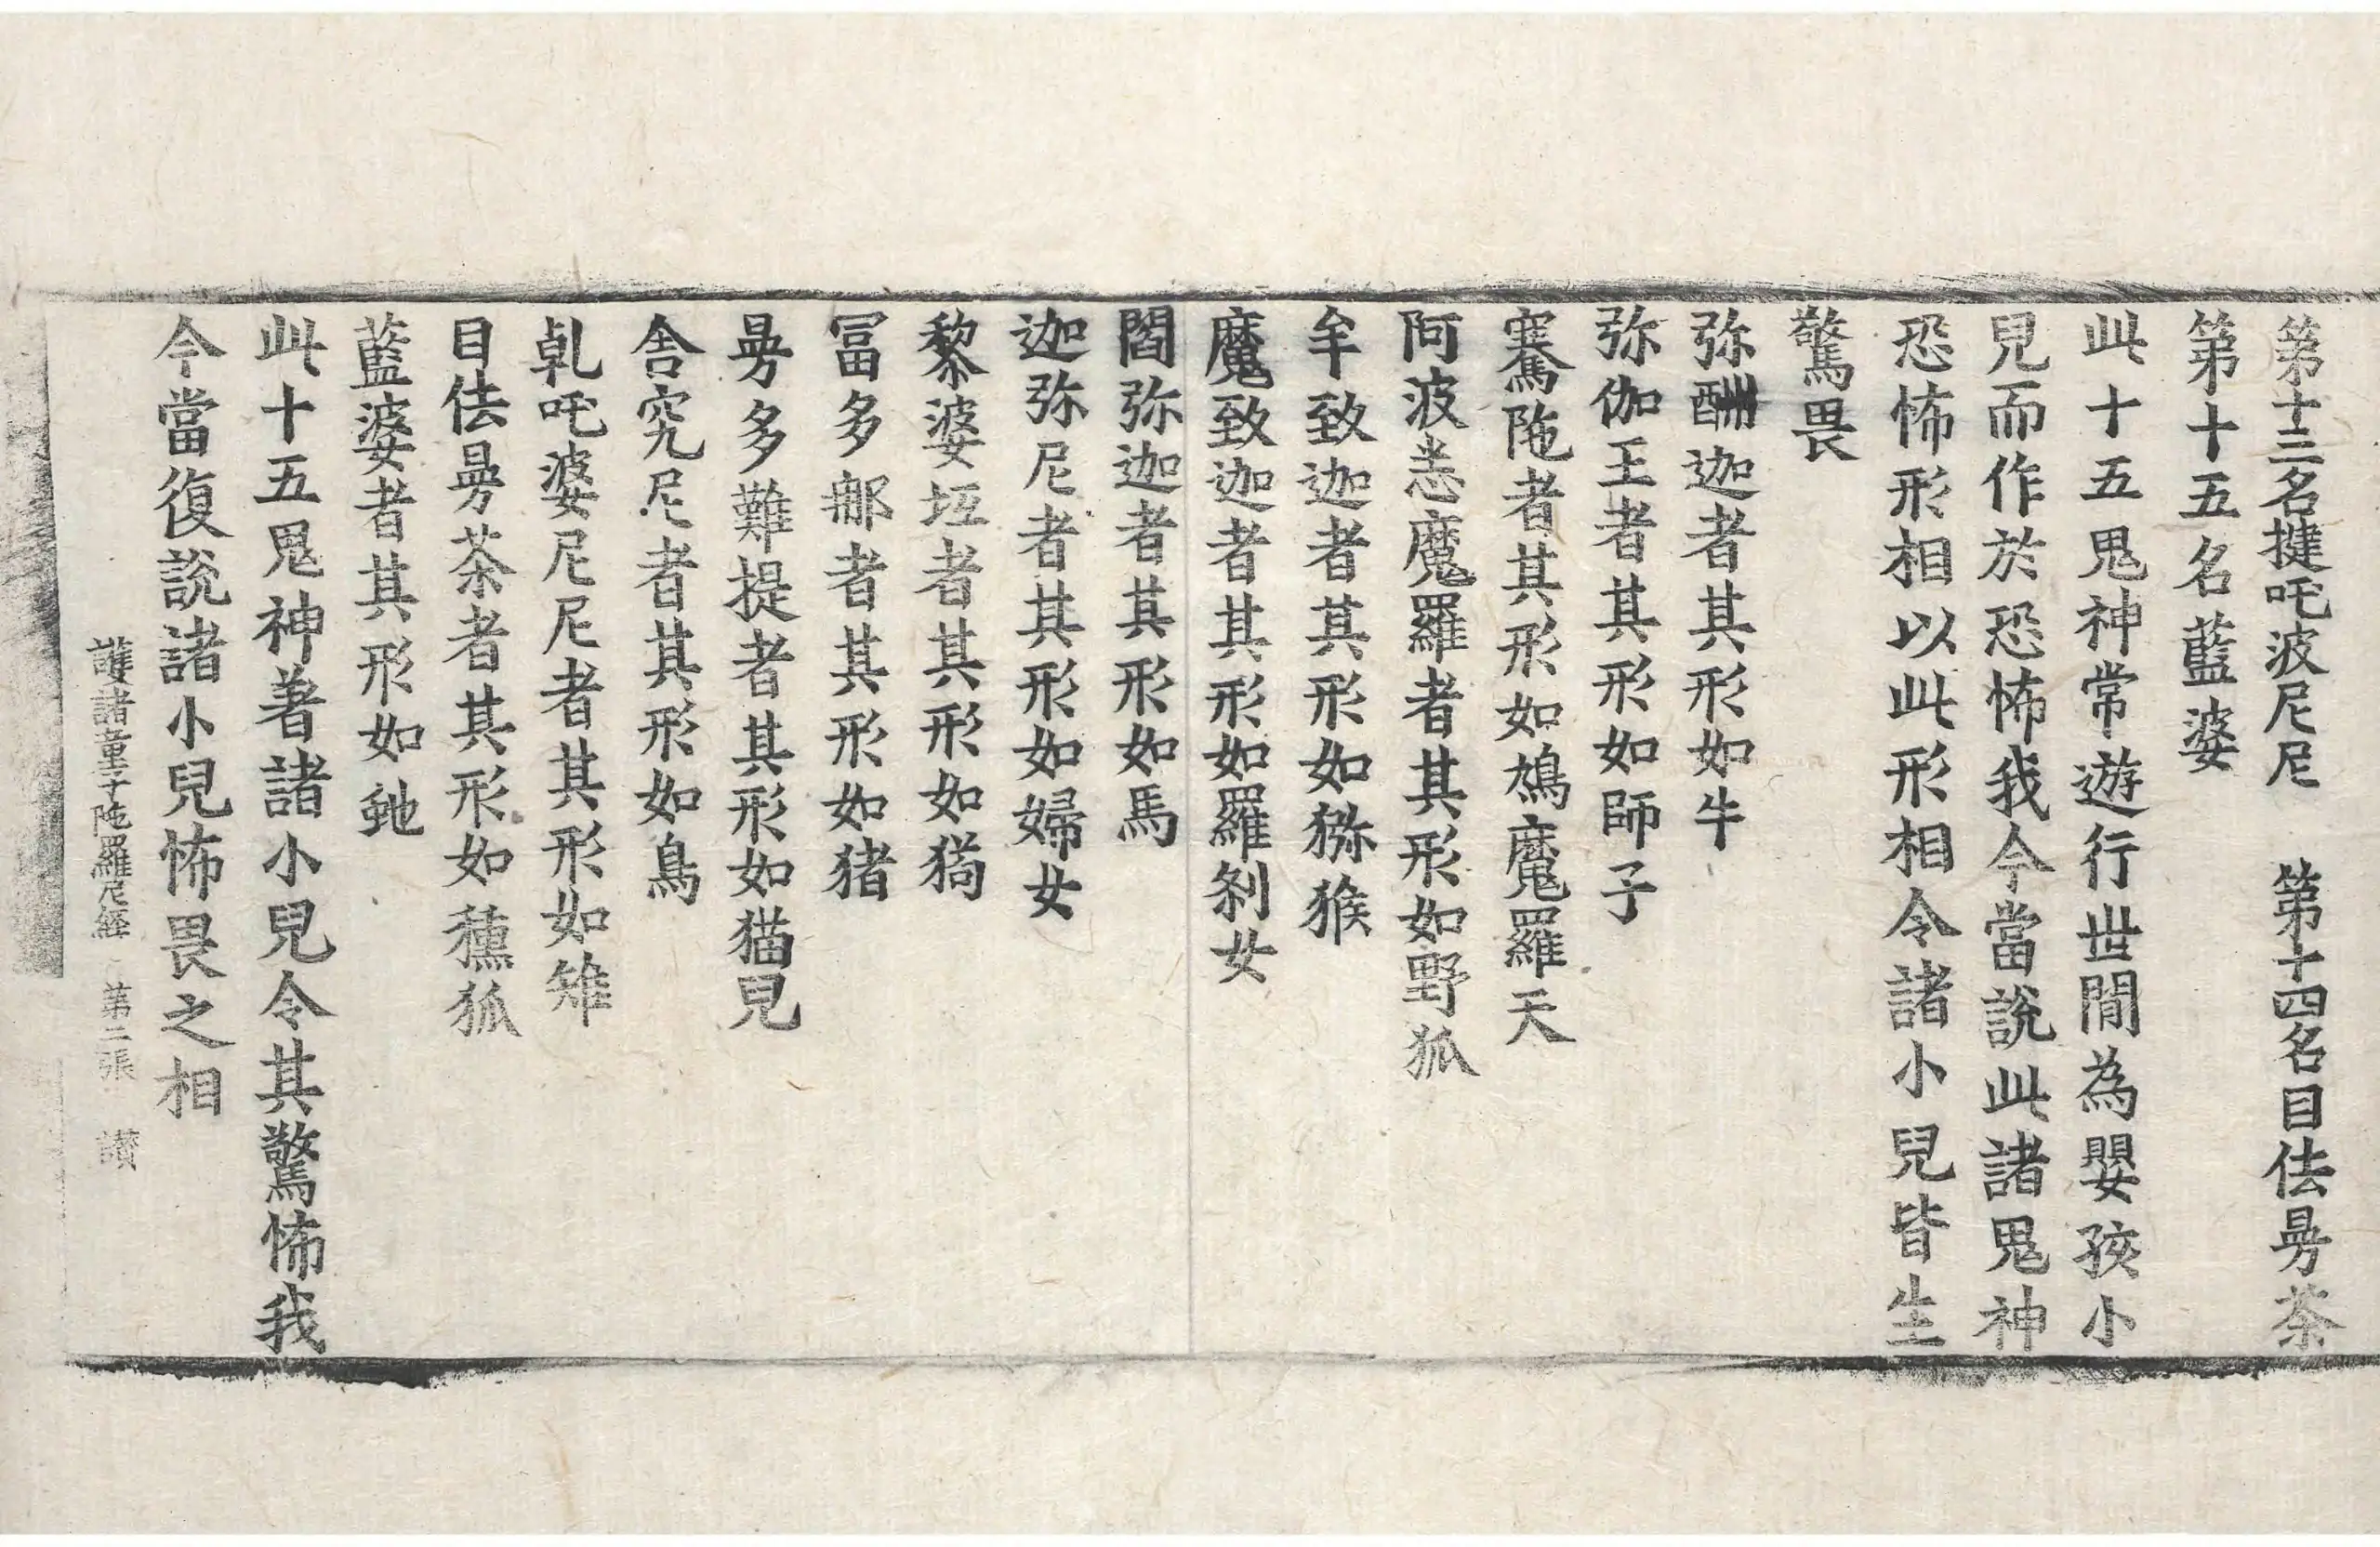 第十三名揵吒波尼尼　第十四名目佉曼荼
第十五名藍婆
此十五鬼神常遊行世閒為嬰孩小
兒而作於恐怖我今當說此諸鬼神
恐怖形相以此形相令諸小兒皆生
驚畏
弥酬迦者其形如牛
弥伽王者其形如師子
騫陁者其形如鳩魔羅天
阿波悉魔羅者其形如野狐
牟致迦者其形如獼猴
魔致迦者其形如羅剎女
閻弥迦者其形如馬
迦弥尼者其形如婦女
黎婆坻者其形如狗
冨多那者其形如猪
曼多難提者其形如猫兒
舍究尼者其形如鳥
乹吒婆尼尼者其形如雉
目佉曼荼者其形如獯狐
藍婆者其形如虵
此十五鬼神著諸小兒令其驚怖我
今當復說諸小兒怖畏之相
護諸童子陁羅尼經　第二張　讃